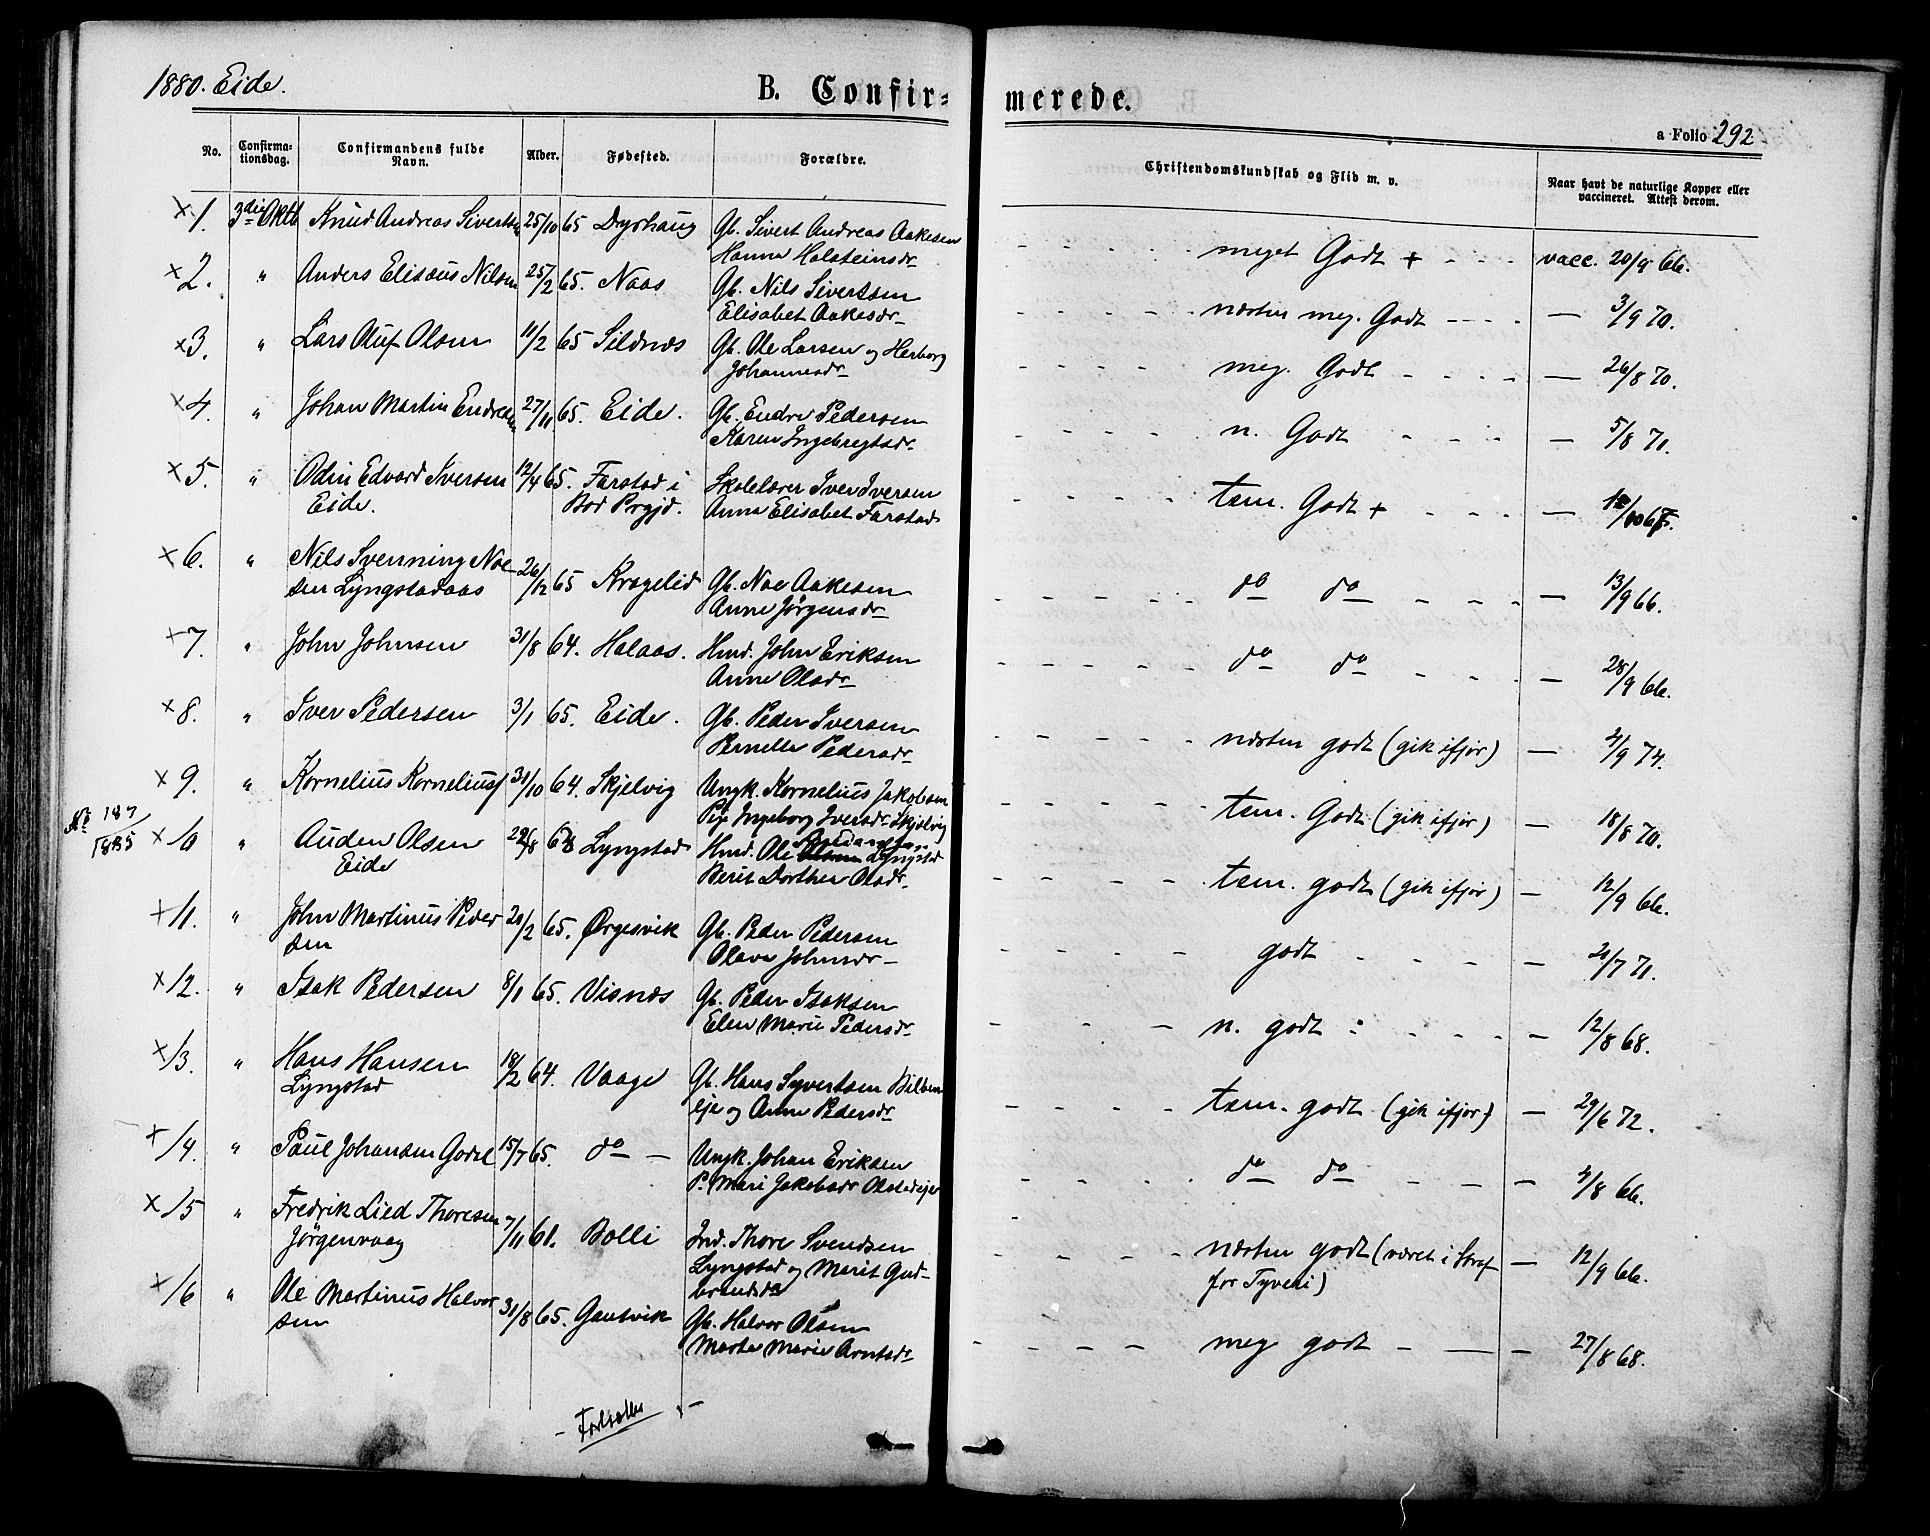 1880. Eide.
B. Confir=
merede.
a Folio 292
No.
Confirma-
tionsdag.
Confirmandens fulde
Navn.
Alder.
Fødested.
Forældre.
Christendomskundskab og Flid m. v.
Naar havt de naturlige Kopper eller
vaccineret. Attest derom.
x 1. 3die Oktb Knud Andreas Sivertsen 25/10 65 Dyrhaug Gb. Sivert Andreas Aakesen
Hanna Holsteinsdr
meget Godt + vacc. 20/9 66.
x 2. " Anders Elisæus Nilsen 25/2 65. Naas Gb. Nils Sivertsen
Elisabet Aakesdr
næsten meg. Godt — 3/9 70.
x 3. " Lars Oluf Olsen 11/2 65 Sildnæs Gb. Ole Larsen og Herborg
Johannesdr
meg. Godt — 26/8 70.
x 4. " Johan Martin Endresen 27/11 65. Eide. Gb. Endre Pedersen
Karen Ingebregtsdr
n. Godt — 5/8 71.
x 5. " Odin Edvard Iversen 12/4 65. Farstad i Skolelærer Iver Iversen
Eide. Bod Prgjd. Anna Elisabet Farstad
tem. Godt +
x 6. " Nils Svenning Noe-
sen Lyngstadaas 26/12 65 Kragelid Gb. Noe Aakesen
Anne Jørgensdr
do do — 13/9 66.
x 7. " John Johnsen 31/8 64. Halaas. Hmd. John Eriksen
Anne Olsdr
do do — 28/9 66.
x 8. " Iver Pedersen 3/1 65. Eide. Gb. Peder Iversen
Pernelle Pedersdr
næsten godt (gik ifjor) — 4/9 74.
x 9. " Kornelius Korneliuss 31/10 64. Skjelvig Ungk. Kornelius Jakobsen
Pige Ingeborg Iversdr Skjelvig
tem. Godt (gik ifjor) — 18/8 70.
No 187
1885
x 10 " Auden Olsen Lyngstad Hmd. Ole Lyngstad
Eide Berit Dorthea Olsdr
tem. godt (gik ifjor) — 12/9 66.
x 11. " John Martinus Peder
sen 20/2 65. Ørgesvik Gb. Peder Pedersen
Olava Johnsdr
godt — 21/7 71.
x 12. " Isak Pedersen 8/1 65. Visnæs Gb. Peder Isaksen
Elen Marie Pedersdr
n. godt — 12/8 68.
x 13. " Hans Hansen 18/2 64. Vaage Gb. Hans Syvertsen
Lyngstad eje og Anne Pedersdr
tem. godt (gik ifjor) — 29/6 72.
x 14. " Paul Johansen 15/7 65. do — Ungk. Johan Eriksen
P. Mari Jakobsdr
do do — 4/8 66.
x 15 " Fredrik Lied Thoresen
Jörgenvaag 7/11 61. Bolli Ind. Thore Svendsen
Lyngstad og Marit Gud-
brandsdr
næsten godt (været i Straf
for Tyveri) — 12/9 66.
x 16 " Ole Martinus Halvor
sen 31/8 65. Gautvik Gb. Halvor Olsen
Marta Marie Arntsdr
meg godt — 27/8 68.
- Fortsættes -